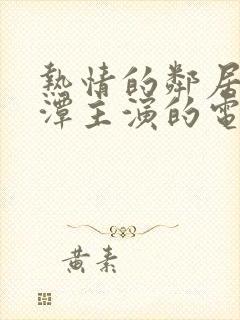 熱情的鄰居
潭主演的電
黃素